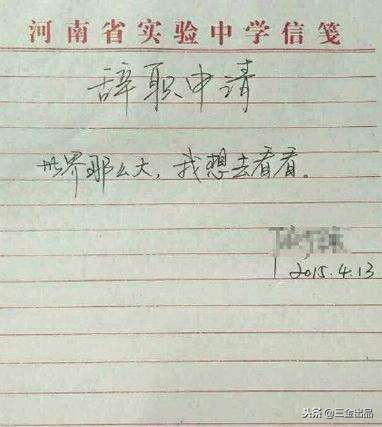 河南省实验中学信笺
辞职申请
世界那么大，我想去看看。
2015.4.13
头条@三金出品